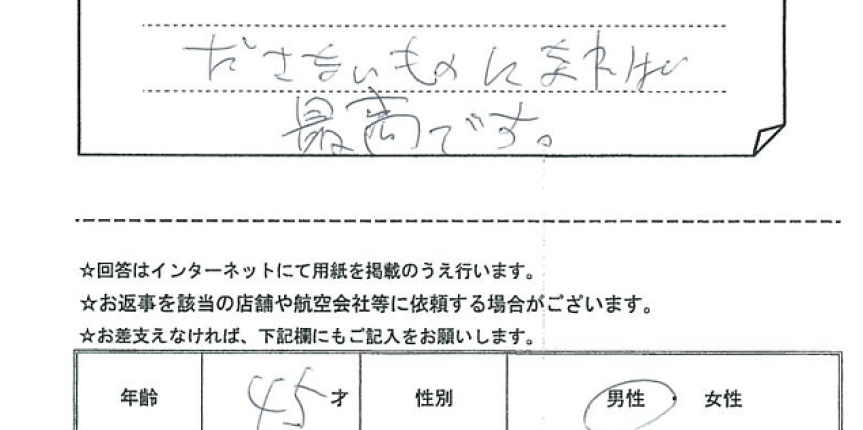 最高です。
☆回答はインターネットにて用紙を掲載のうえ行います。
☆お返事を該当の店舗や航空会社等に依頼する場合がございます。
☆お差支えなければ、下記欄にもご記入をお願いします。
年齢 45才 性別 男性・女性